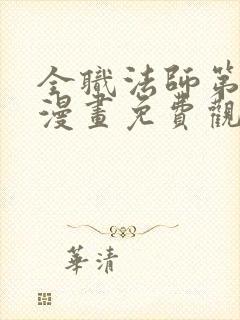 全職法師第
漫畫免費觀
華清